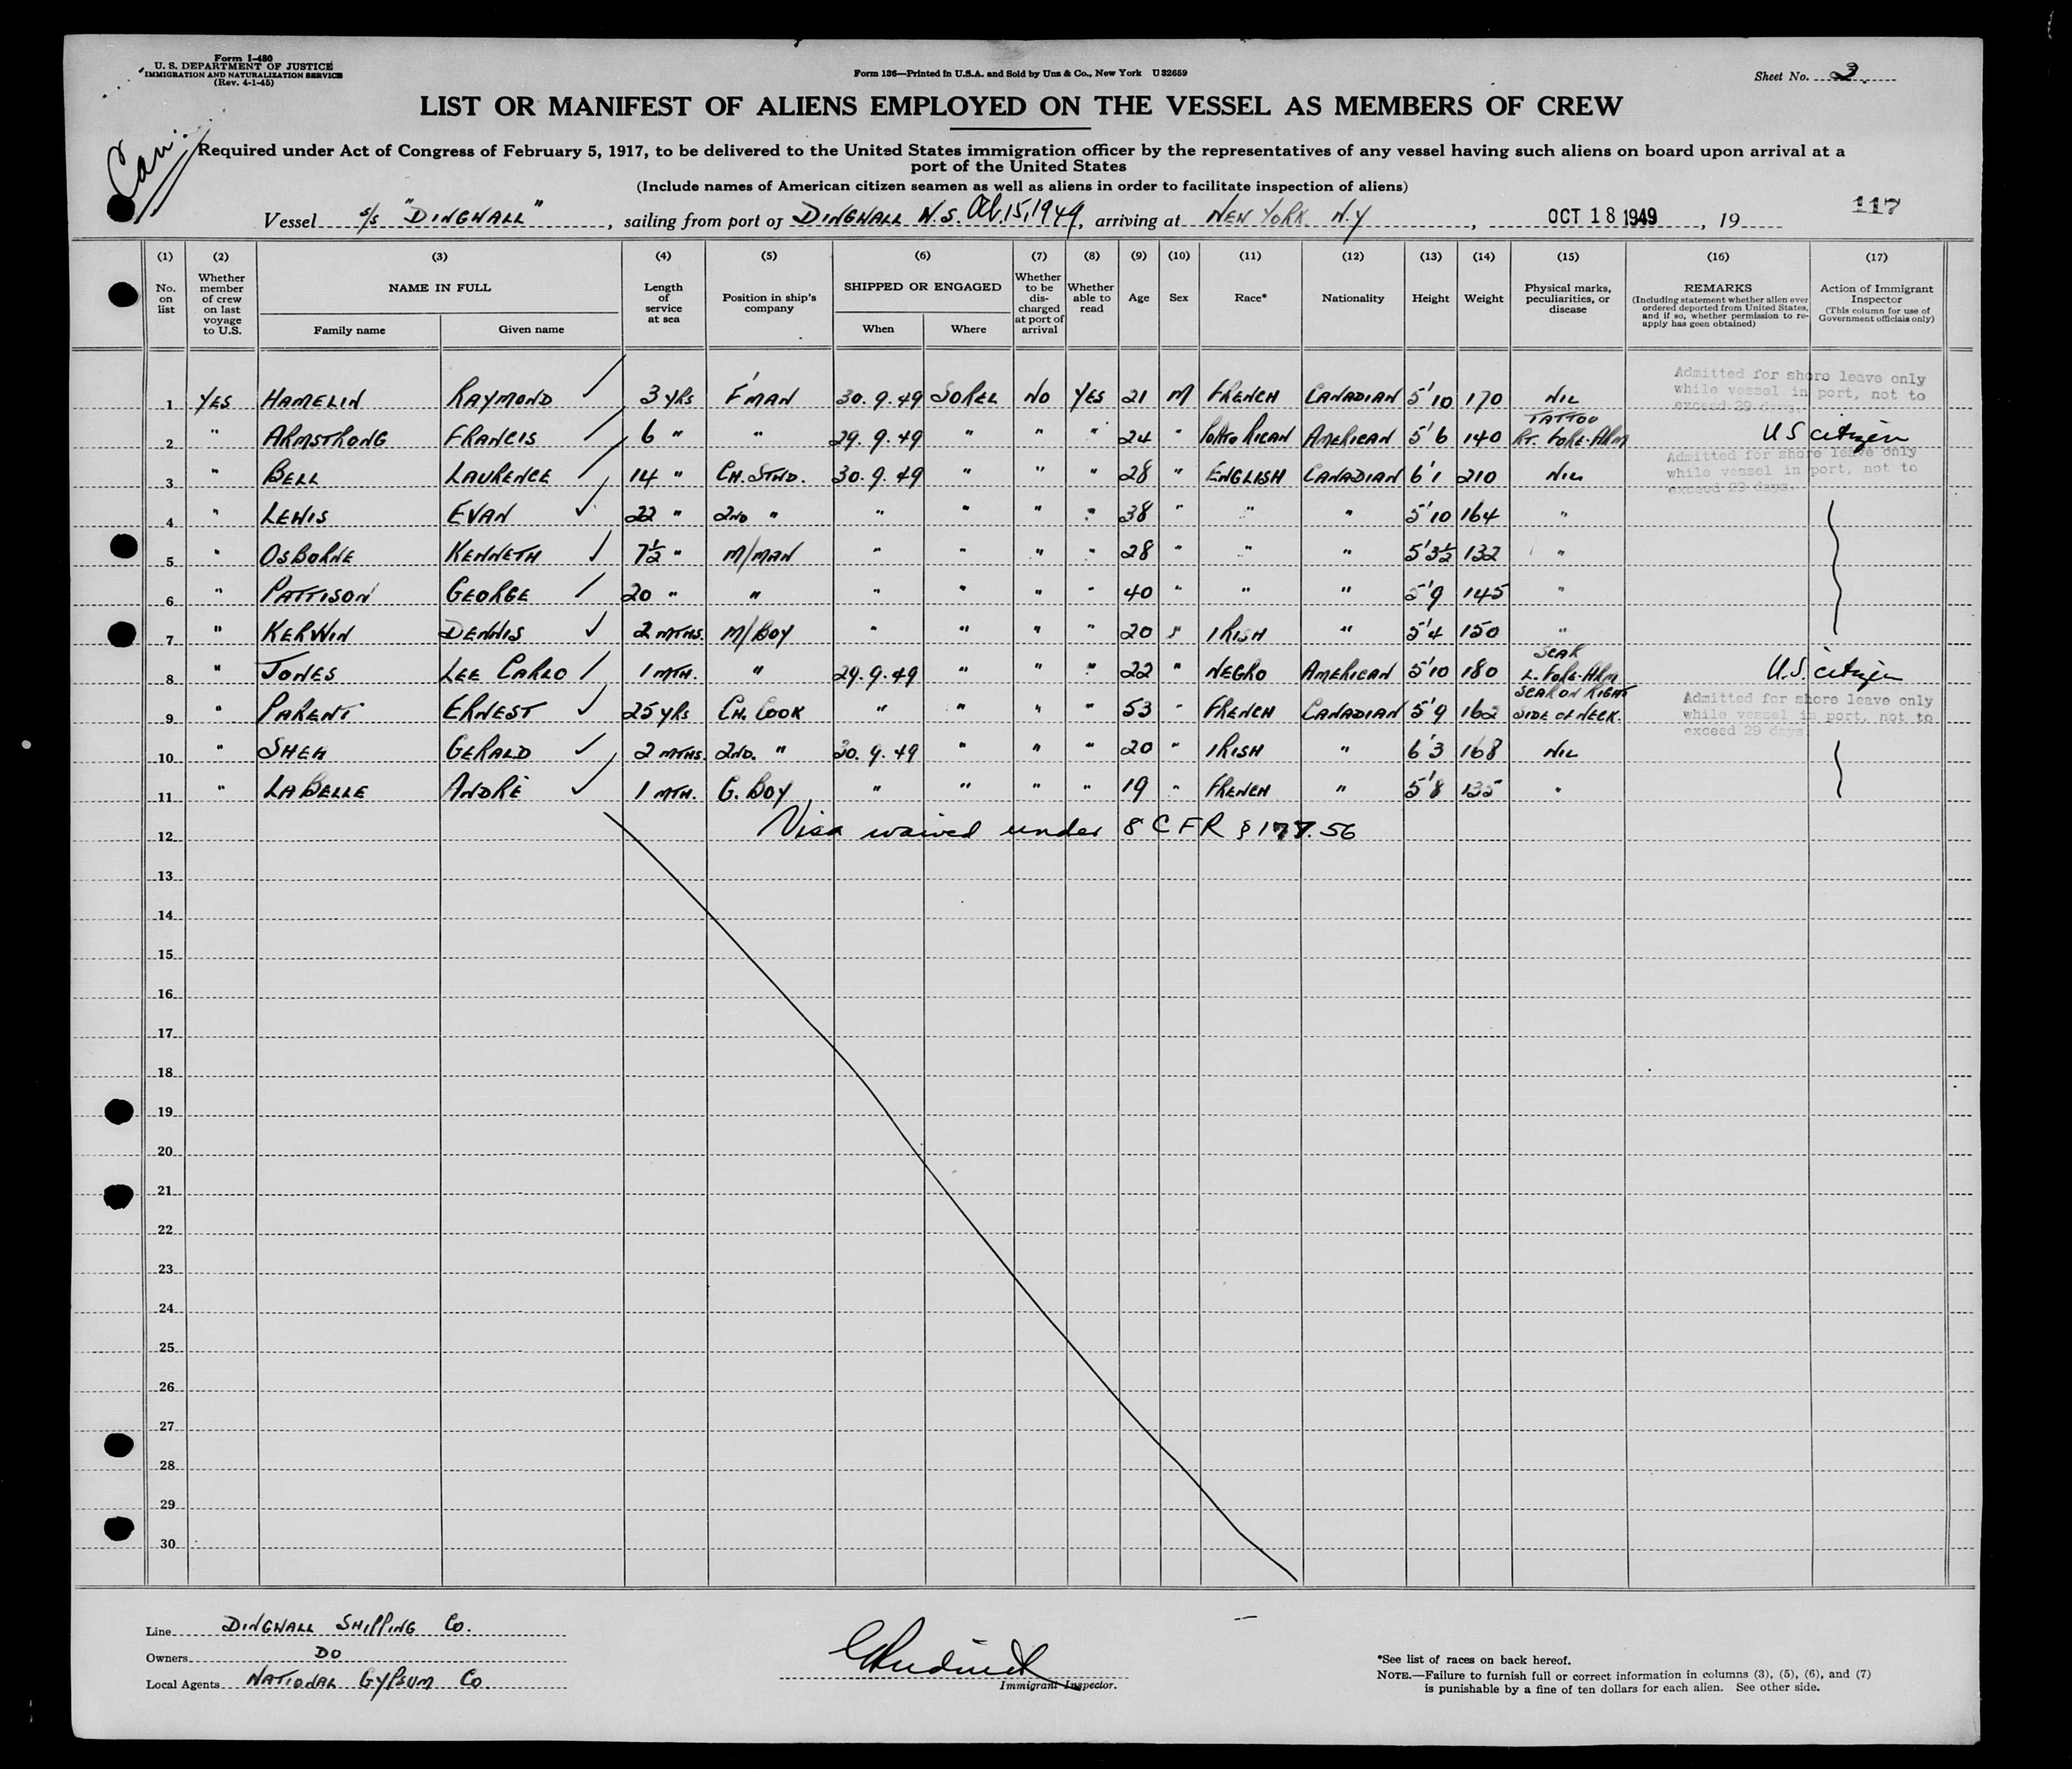 Form I-480
U. S. DEPARTMENT OF JUSTICE
IMMIGRATION AND NATURALIZATION SERVICE
(Rev. 4-1-45)
Form 136—Printed in U.S.A. and Sold by Unz & Co., New York U 32659
Sheet No. 3
LIST OR MANIFEST OF ALIENS EMPLOYED ON THE VESSEL AS MEMBERS OF CREW
Can.
Required under Act of Congress of February 5, 1917, to be delivered to the United States immigration officer by the representatives of any vessel having such aliens on board upon arrival at a
port of the United States
(Include names of American citizen seamen as well as aliens in order to facilitate inspection of aliens)
117
Vessel S/S "DINGWALL", sailing from port of DINGWALL N.S. Oct. 15, 1949, arriving at NEW YORK N.Y, OCT 18 1949, 19
(1) (2) (3) (4) (5) (6) (7) (8) (9) (10) (11) (12) (13) (14) (15) (16) (17)
No. on list Whether member of crew on last voyage to U.S. NAME IN FULL Family name Given name Length of service at sea Position in ship's company SHIPPED OR ENGAGED When Where Whether to be discharged at port of arrival Whether able to read Age Sex Race* Nationality Height Weight Physical marks, peculiarities, or disease REMARKS (Including statement whether alien ever ordered deported from United States, and if so, whether permission to re-apply has geen obtained) Action of Immigrant Inspector (This column for use of Government officials only)
1 YES HAMELIN RAYMOND 3 YRS F'MAN 30.9.49 SOREL NO YES 21 M FRENCH CANADIAN 5'10 170 NIL Admitted for shore leave only while vessel in port, not to exceed 29 days.
2 " ARMSTRONG FRANCIS 6 " " 29.9.49 " " " 24 " PORTO RICAN AMERICAN 5'6 140 TATTOO RT. FORE-ARM US citizen
3 " BELL LAURENCE 14 " CH. STWD. 30.9.49 " " " 28 " ENGLISH CANADIAN 6'1 210 NIL Admitted for shore leave only while vessel in port, not to exceed 29 days.
4 " LEWIS EVAN 22 " 2ND " " " " " 38 " " " 5'10 164 "
5 " OSBORNE KENNETH 7½ " M/MAN " " " " 28 " " " 5'3½ 132 "
6 " PATTISON GEORGE 20 " " " " " " 40 " " " 5'9 145 "
7 " KERWIN DENNIS 2 MTHS. M/BOY " " " " 20 " IRISH " 5'4 150 "
8 " JONES LEE CARLO 1 MTH. " 29.9.49 " " " 22 " NEGRO AMERICAN 5'10 180 SCAR L. FORE-ARM U.S. citizen
9 " PARENT ERNEST 25 YRS CH. COOK " " " " 53 " FRENCH CANADIAN 5'9 162 SCAR ON RIGHT SIDE OF NECK. Admitted for shore leave only while vessel in port, not to exceed 29 days
10 " SHEA GERALD 2 MTHS. 2ND. " 30.9.49 " " " 20 " IRISH " 6'3 168 NIL
11 " LABELLE ANDRÉ 1 MTH. G. BOY " " " " 19 " FRENCH " 5'8 135 "
12 Visa waived under 8 CFR § 177.56
13
14
15
16
17
18
19
20
21
22
23
24
25
26
27
28
29
30
Line DINGWALL SHIPPING CO.
Owners DO
Local Agents NATIONAL GYPSUM CO.
Immigrant Inspector.
*See list of races on back hereof.
NOTE.—Failure to furnish full or correct information in columns (3), (5), (6), and (7)
is punishable by a fine of ten dollars for each alien. See other side.